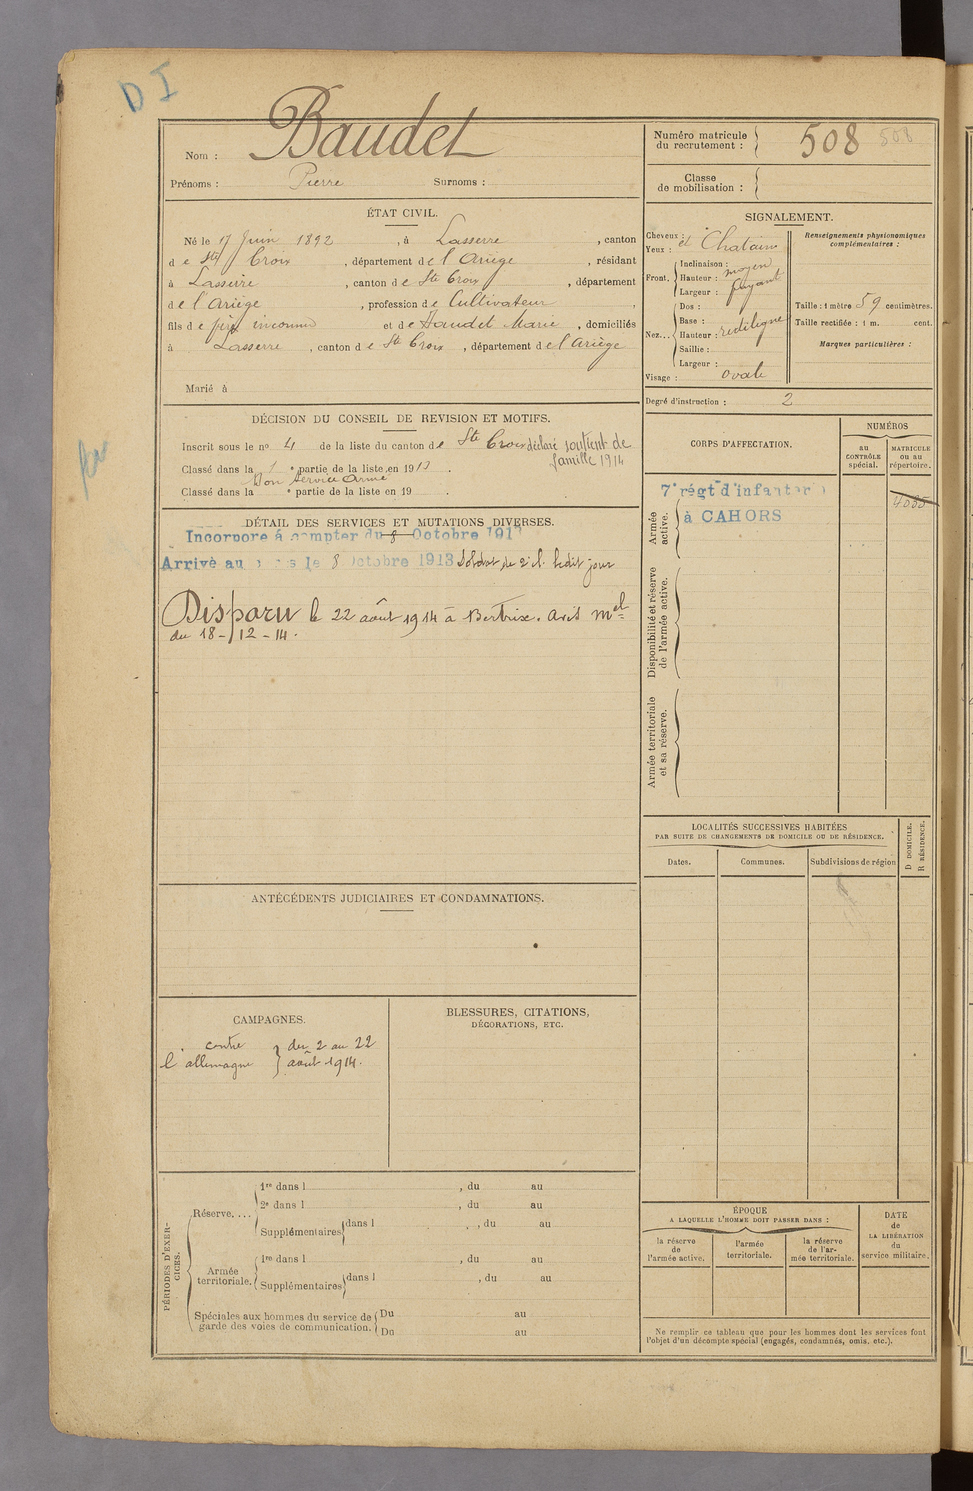 D I
Nom : Baudet
Prénoms : Pierre Surnoms :
Numéro matricule du recrutement : 508 508
Classe de mobilisation :
ÉTAT CIVIL.
Né le 17 Juin 1892, à Lasserre, canton
de Ste Croix, département de l'Ariège, résidant
à Lasserre, canton de Ste Croix, département
de l'Ariège, profession de Cultivateur,
fils de père inconnu et de Baudet Marie, domiciliés
à Lasserre, canton de Ste Croix, département de l'Ariège
Marié à
SIGNALEMENT.
Cheveux : et Chatains
Yeux :
Front. Inclinaison : moyen
Hauteur : fuyant
Largeur :
Nez... Dos :
Base :
Hauteur : rectiligne
Saillie :
Largeur :
Visage : ovale
Renseignements physionomiques complémentaires :
Taille : 1 mètre 59 centimètres.
Taille rectifiée : 1 m. cent.
Marques particulières :
Degré d'instruction : 2
DÉCISION DU CONSEIL DE REVISION ET MOTIFS.
Inscrit sous le no 4 de la liste du canton de Ste Croix déclaré soutient de
famille 1914
Classé dans la 1 e partie de la liste en 1913.
Bon Service Armé
Classé dans la e partie de la liste en 19 .
DÉTAIL DES SERVICES ET MUTATIONS DIVERSES.
Incorporé à compter du 8 Octobre 191
Arrivé au le 8 Octobre 1913 Soldat de 2e cl. ledit jour
Disparu le 22 août 1914 à Bertrix. Avis mel
du 18-12-14.
ANTÉCÉDENTS JUDICIAIRES ET CONDAMNATIONS.
CAMPAGNES.
contre du 2 au 22
l'allemagne août 1914.
BLESSURES, CITATIONS,
DÉCORATIONS, ETC.
PÉRIODES D'EXERCICES.
Réserve....
1re dans l , du au
2e dans l , du au
Supplémentaires dans l , du au
Armée territoriale.
1re dans l , du au
Supplémentaires dans l , du au
Spéciales aux hommes du service de Du au
garde des voies de communication. Du au
CORPS D'AFFECTATION.
NUMÉROS
au CONTRÔLE spécial.
MATRICULE ou au répertoire.
Armée active.
7e régt d'infanterie
à CAHORS
4085
Disponibilité et réserve de l'armée active.
Armée territoriale et sa réserve.
LOCALITÉS SUCCESSIVES HABITÉES
PAR SUITE DE CHANGEMENTS DE DOMICILE OU DE RÉSIDENCE.
D DOMICILE.
R RÉSIDENCE.
Dates.
Communes.
Subdivisions de région
ÉPOQUE
A LAQUELLE L'HOMME DOIT PASSER DANS :
la réserve de l'armée active.
l'armée territoriale.
la réserve de l'armée territoriale.
DATE de LA LIBÉRATION du service militaire.
Ne remplir ce tableau que pour les hommes dont les services font
l'objet d'un décompte spécial (engagés, condamnés, omis, etc.).